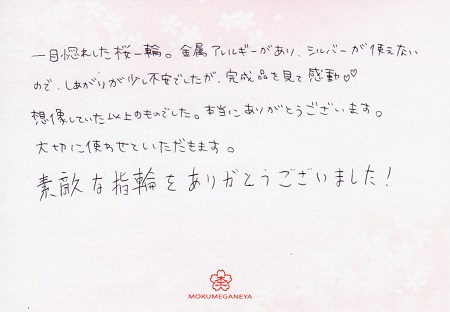 一目惚れした桜一輪。金属アレルギーがあり、シルバーが使えない
ので、しあがりが少し不安でしたが、完成品を見て感動♡♡
想像していた以上のものでした。本当にありがとうございます。
大切に使わせていただきます。
素敵な指輪をありがとうございました!
MOKUMEGANEYA